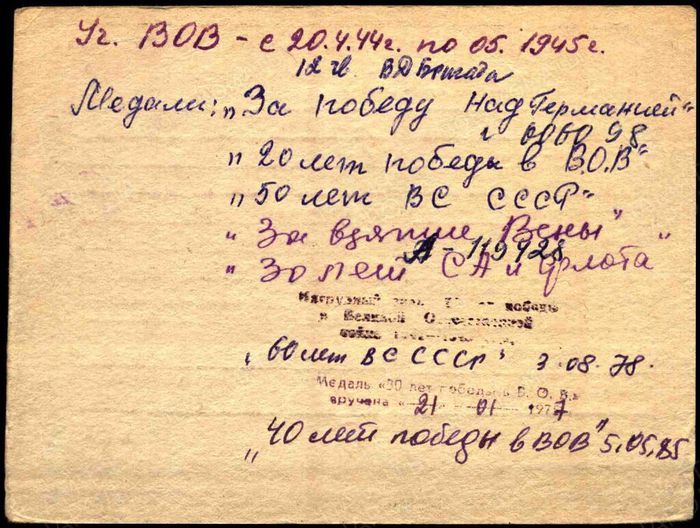 Уч. ВОВ - с 20.4.44г. по 05. 1945г.
12 гв. ВД Бригада
Медали: „За победу над Германией"
№ 0060 98
„20 лет победы в В.О.В"
„50 лет ВС СССР"
„За взятие Вены"
А-119928
„30 лет СА и флота"
Нагрудный знак лет победы
в Великой Отечественной
войне
„60 лет ВС СССР" 3.08.78.
Медаль «30 лет победы в В. О. В.»
вручена «21» 01 1977
„40 лет победы в ВОВ" 5.05.85